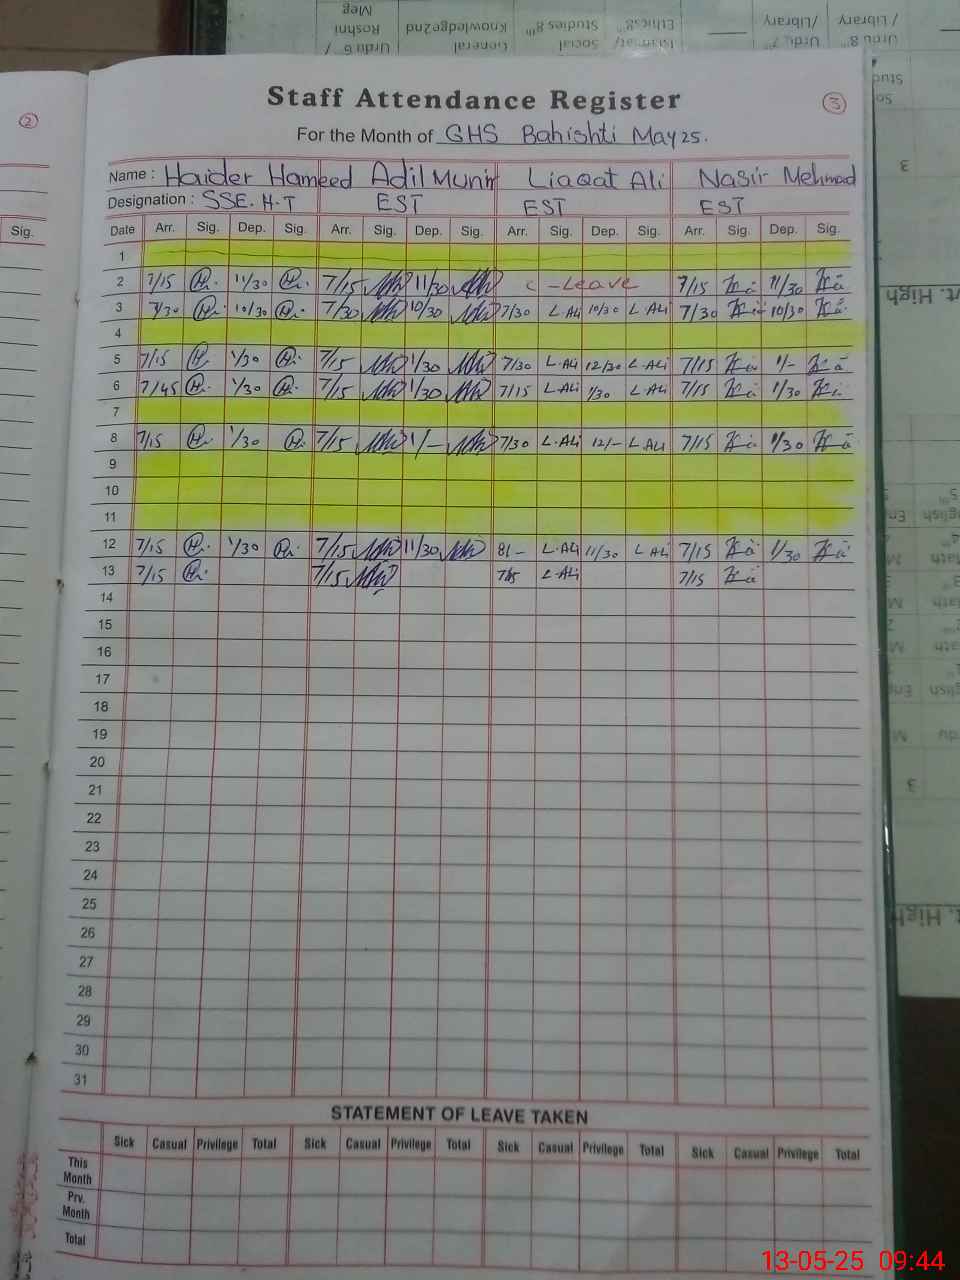 Meg
Roshni
Urdu 6
Knowledge2nd
General
Studies 8th
Social
Ethics8th
Islamiat/
/Library
Urdu 7th
/ Library
Urdu 8th
Stud
So
3
2
Sig.
Staff Attendance Register
3
For the Month of GHS Bahishti May 25.
Name : Haider Hameed Adil Munir Liaqat Ali Nasir Mehmood
Designation : SSE. H-T EST EST EST
Date Arr. Sig. Dep. Sig. Arr. Sig. Dep. Sig. Arr. Sig. Dep. Sig. Arr. Sig. Dep. Sig.
1
2 7/15 11/30 7/15 11/30 C - Leave 7/15 11/30
3 7/30 10/30 7/30 10/30 7/30 L Ali 10/30 L Ali 7/30 10/30
4
5 7/15 1/30 7/15 1/30 7/30 L. Ali 12/30 L. Ali 7/15 1/-
6 7/45 1/30 7/15 1/30 7/15 L Ali 1/30 L. Ali 7/15 1/30
7
8 7/15 1/30 7/15 1/- 7/30 L. Ali 12/- L Ali 7/15 1/30
9
10
11
12 7/15 1/30 7/15 11/30 8/- L. Ali 11/30 L Ali 7/15 1/30
13 7/15 7/15 7/15 L. Ali 7/15
14
15
16
17
18
19
20
21
22
23
24
25
26
27
28
29
30
31
vt. High
t. High
3
STATEMENT OF LEAVE TAKEN
Sick Casual Privilege Total Sick Casual Privilege Total Sick Casual Privilege Total Sick Casual Privilege Total
This
Month
Prv.
Month
Total
13-05-25 09:44